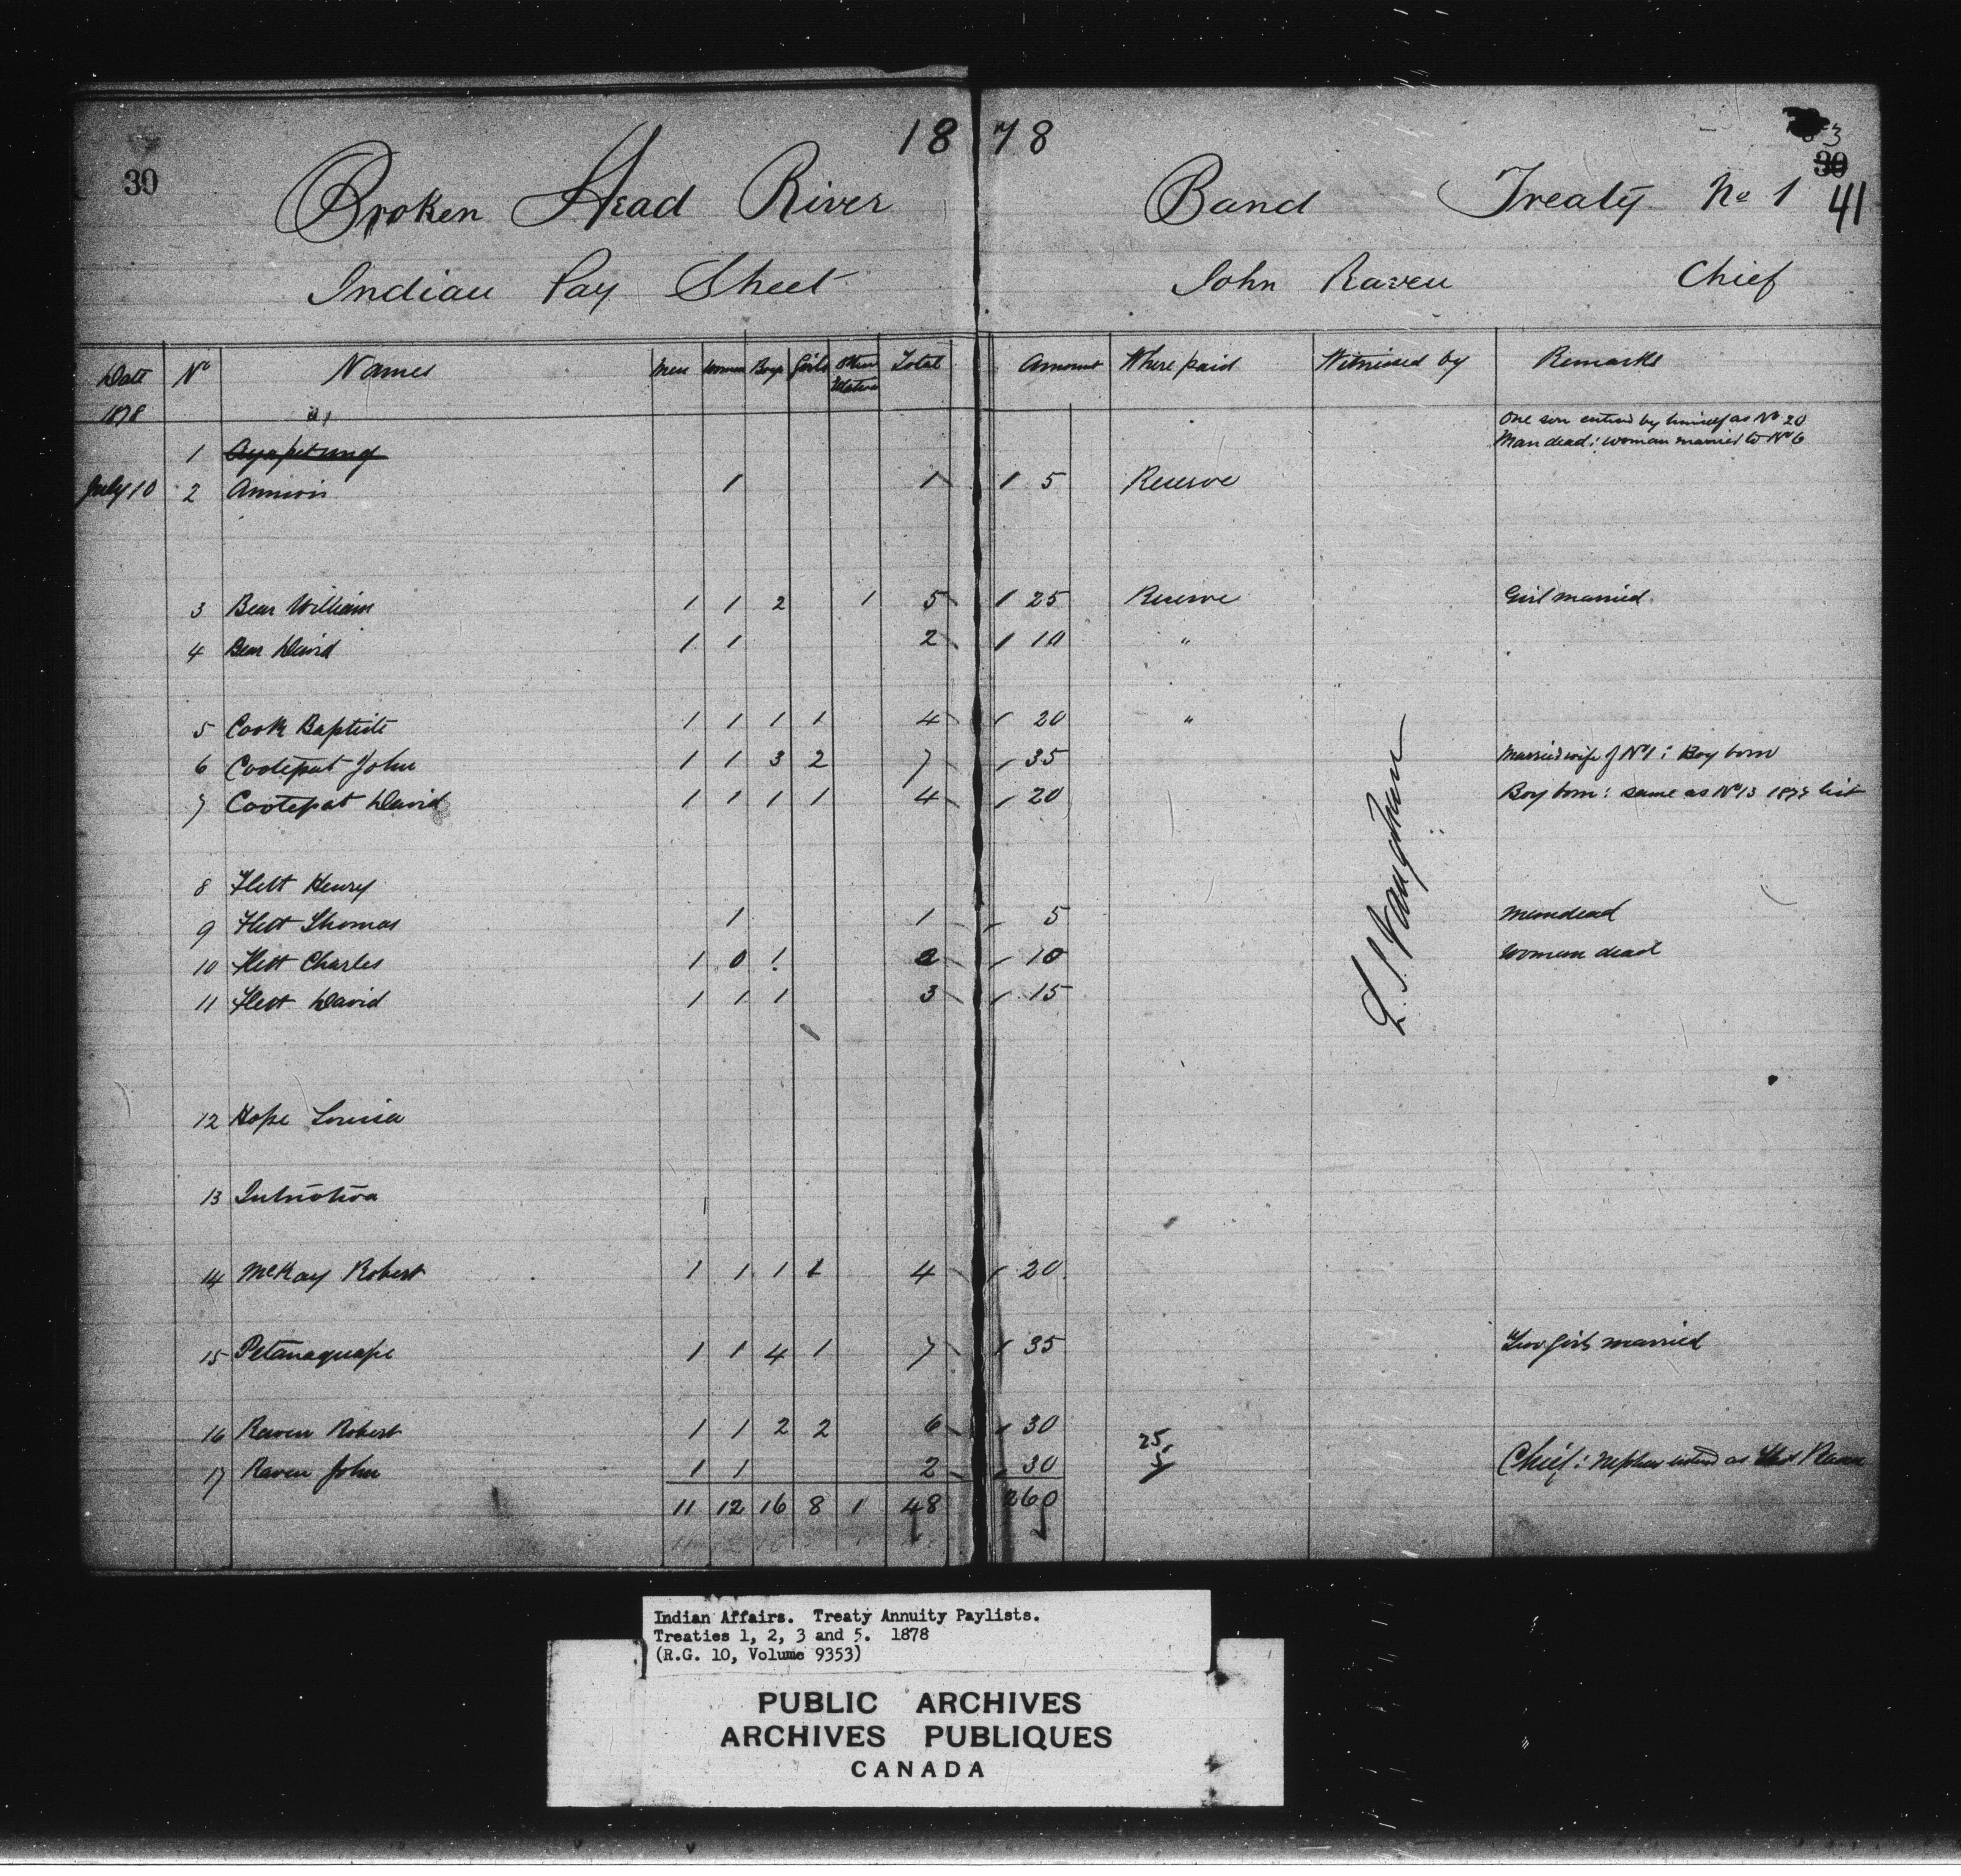 18 78
30
30
41
Broken Head River Band Treaty No 1
Indian Pay Sheet John Raven Chief
Date No Names Men Women Boys Girls Other Relatives Total Amount Where paid Witnessed by Remarks
1878
One son entered by himself as No 20
1 Man dead: woman married to No 6
July 10 2 1 1 5 Reserve
3 Bear William 1 1 2 1 5 25 Reserve Girl married
4 Bear David 1 1 2 10 "
5 Cook Baptiste 1 1 1 1 4 20 "
6 Cootepat John 1 1 3 2 7 35 Married wife of No 1: Boy born
7 Cootepat David 1 1 1 1 4 20 Boy born: same as No 13 list
8 Flett Henry
9 Flett Thomas 1 1 5 Man dead
10 Flett Charles 1 0 1 2 10 Woman dead
11 Flett David 1 1 1 3 15
L. S. Vaughan
12 Hope Louisa
13
14 McKay Robert 1 1 1 1 4 20
15 Petanaquape 1 1 4 1 7 35 Two girls married
16 Raven Robert 1 1 2 2 6 30
17 Raven John 1 1 2 30 25 5 Chief: Nephew entered as Raven
11 12 16 8 1 48 260
Indian Affairs. Treaty Annuity Paylists.
Treaties 1, 2, 3 and 5. 1878
(R.G. 10, Volume 9353)
PUBLIC ARCHIVES
ARCHIVES PUBLIQUES
CANADA